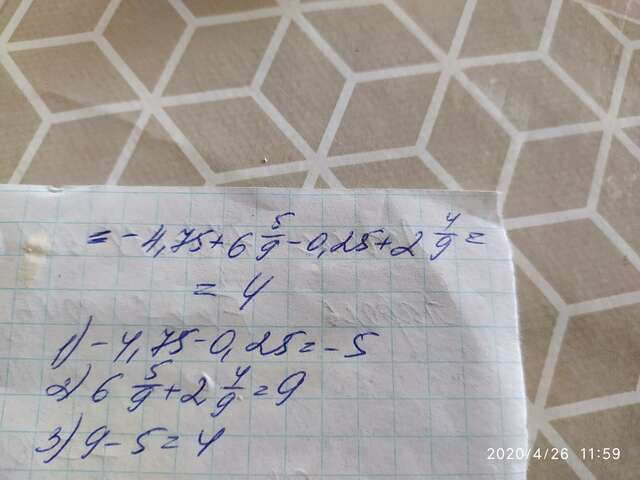 = -4,75 + 6 5/9 - 0,25 + 2 4/9 =
= 4
1) -4,75 - 0,25 = -5
2) 6 5/9 + 2 4/9 = 9
3) 9 - 5 = 4
2020/4/26 11:59